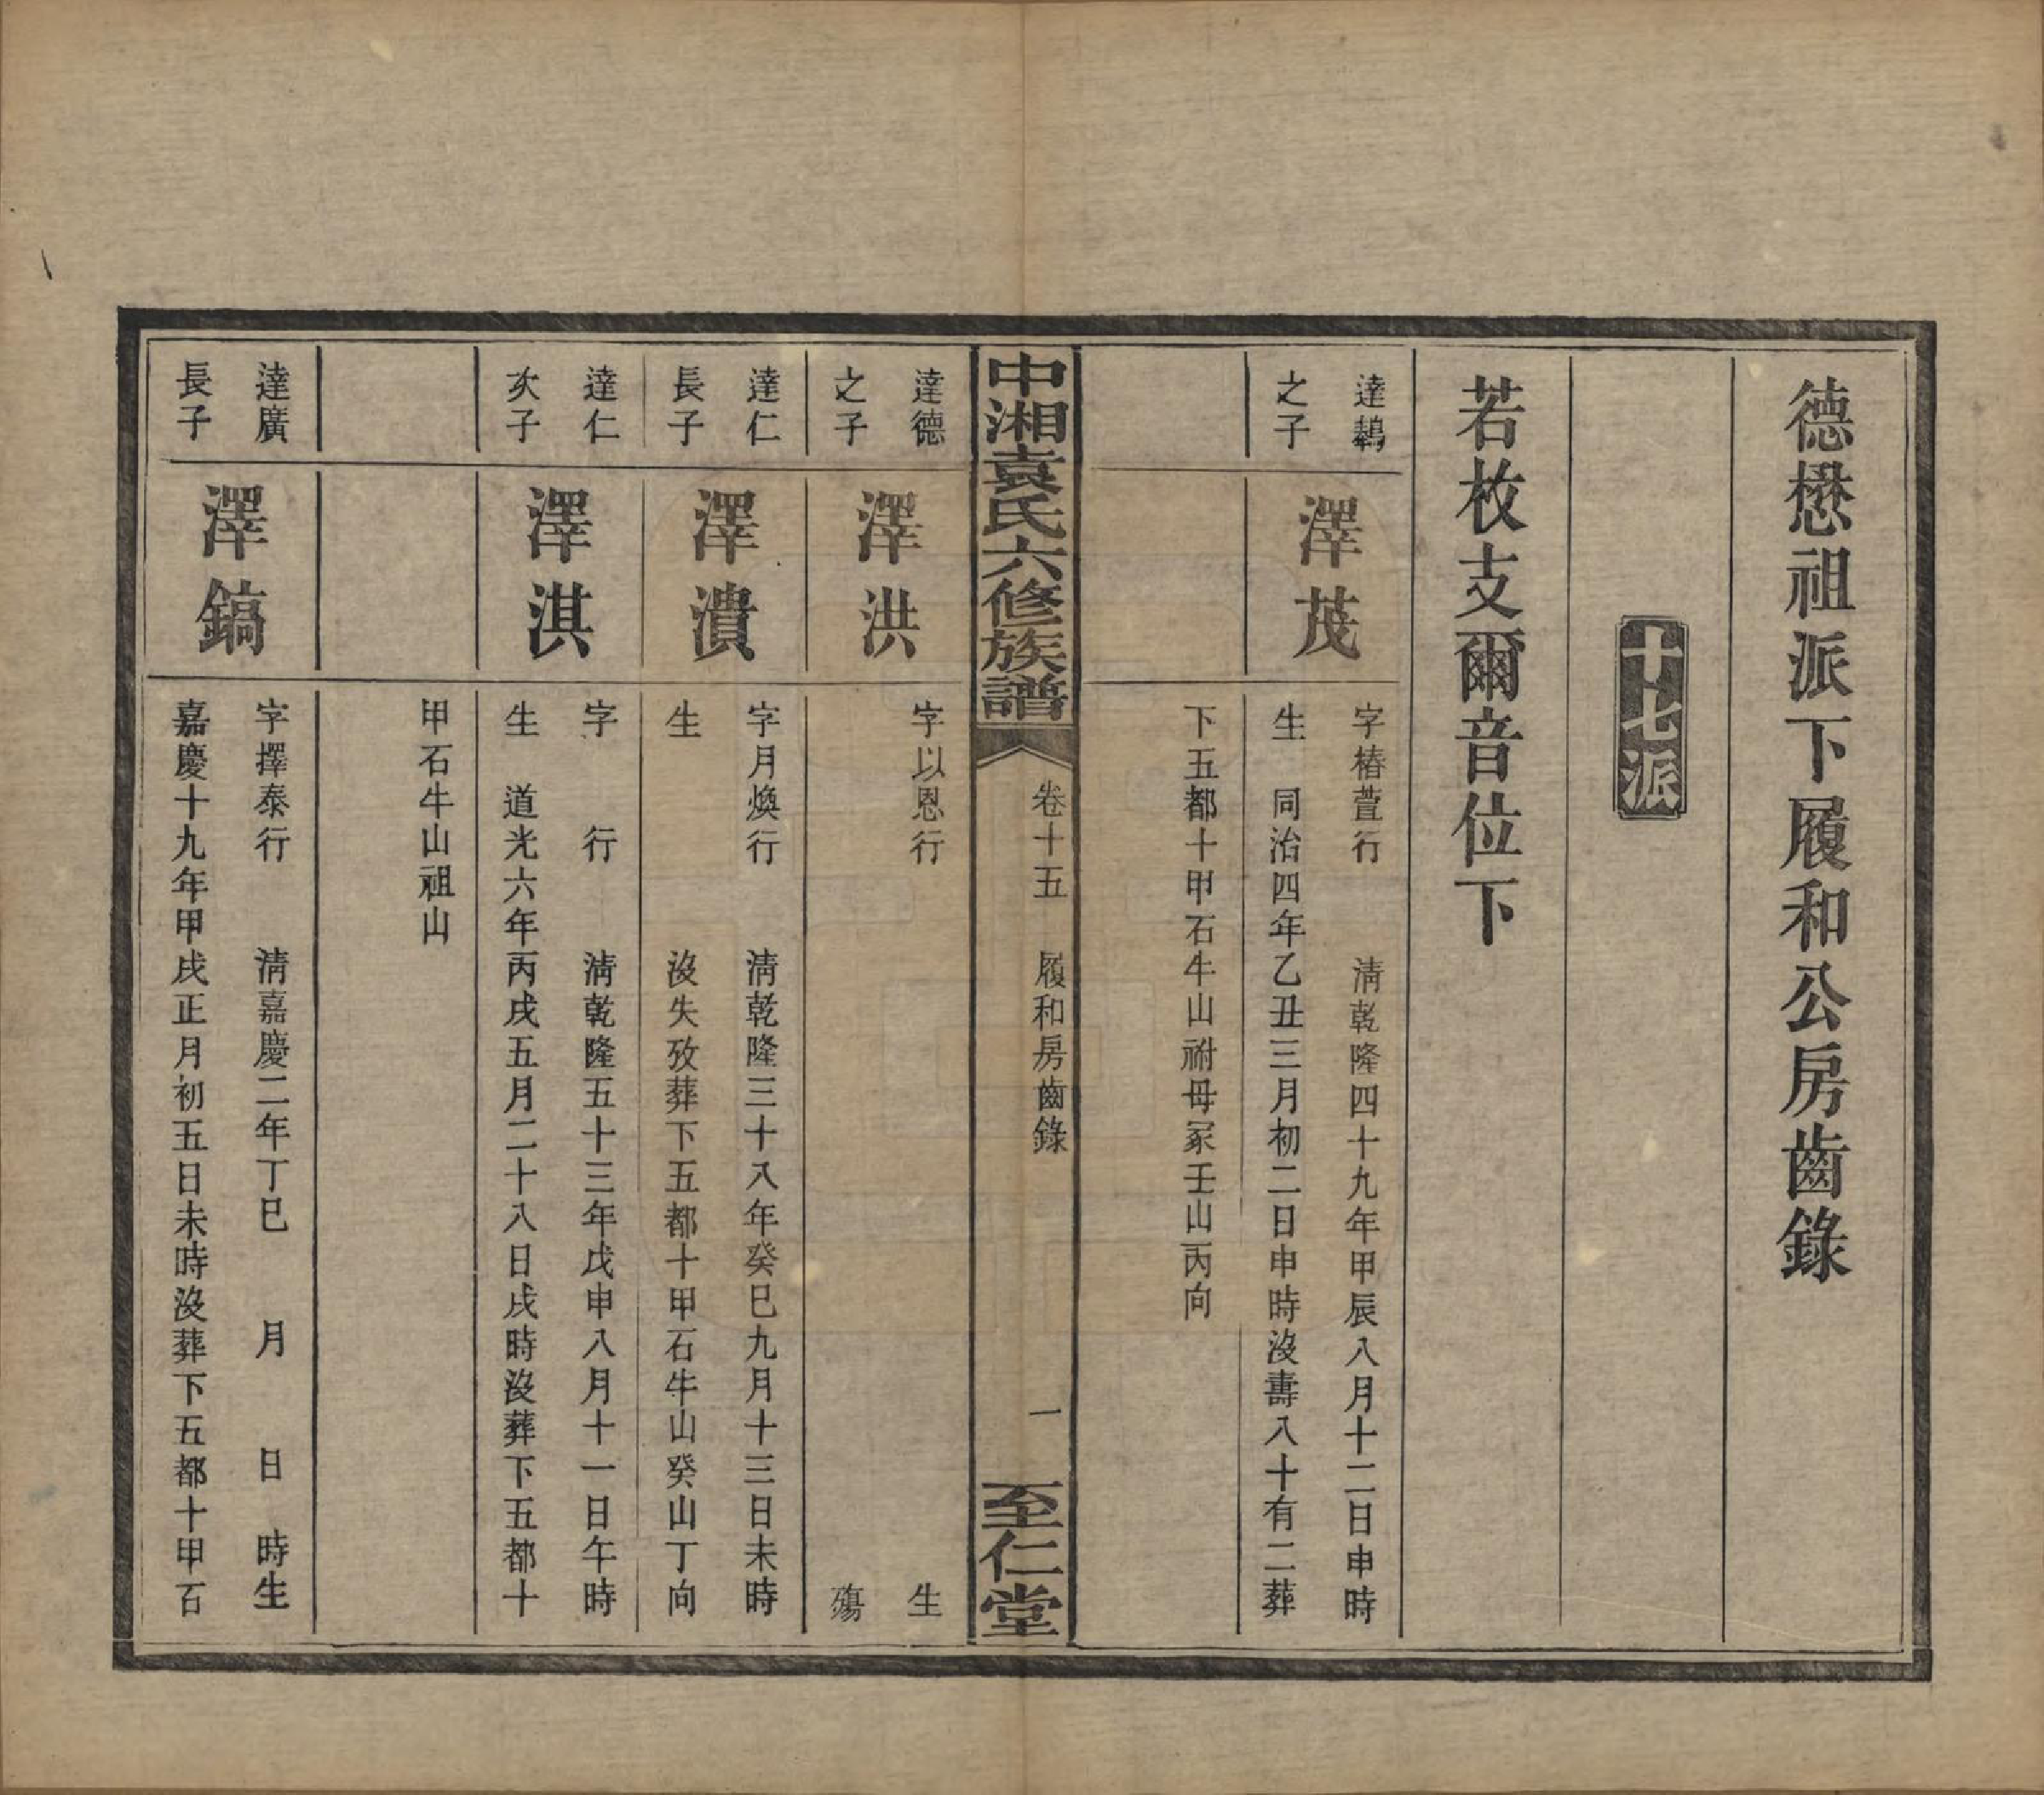 德懋祖派下履和公房齒錄
十七派
若枚支爾音位下
達鷨
之子
澤茂
字椿萱行　　清乾隆四十九年甲辰八月十二日申時
生　同治四年乙丑三月初二日申時沒壽八十有二葬
下五都十甲石牛山祔母冢壬山丙向
中湘袁氏六修族譜
卷十五　履和房齒錄
一
至仁堂
達德
之子
澤洪
字以恩行　　生
殤
達仁
長子
澤潰
字月煥行　　清乾隆三十八年癸巳九月十三日未時
生　　沒失攷葬下五都十甲石牛山癸山丁向
達仁
次子
澤淇
字　行　　清乾隆五十三年戊申八月十一日午時
生　道光六年丙戌五月二十八日戌時沒葬下五都十
甲石牛山祖山
達廣
長子
澤鎬
字擇泰行　　清嘉慶二年丁巳　月　日　時生
嘉慶十九年甲戌正月初五日未時沒葬下五都十甲石